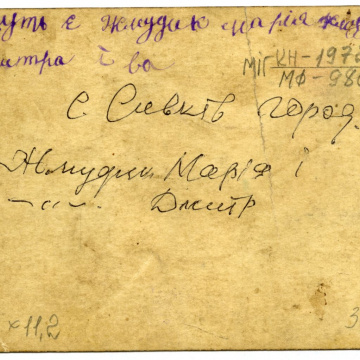 уть є Жмудик Марія
митра і ва
МІГ КН-197
МФ-98
с Сивків город
Жмудик Марія і
—"—. Дмитр
×11,2
3